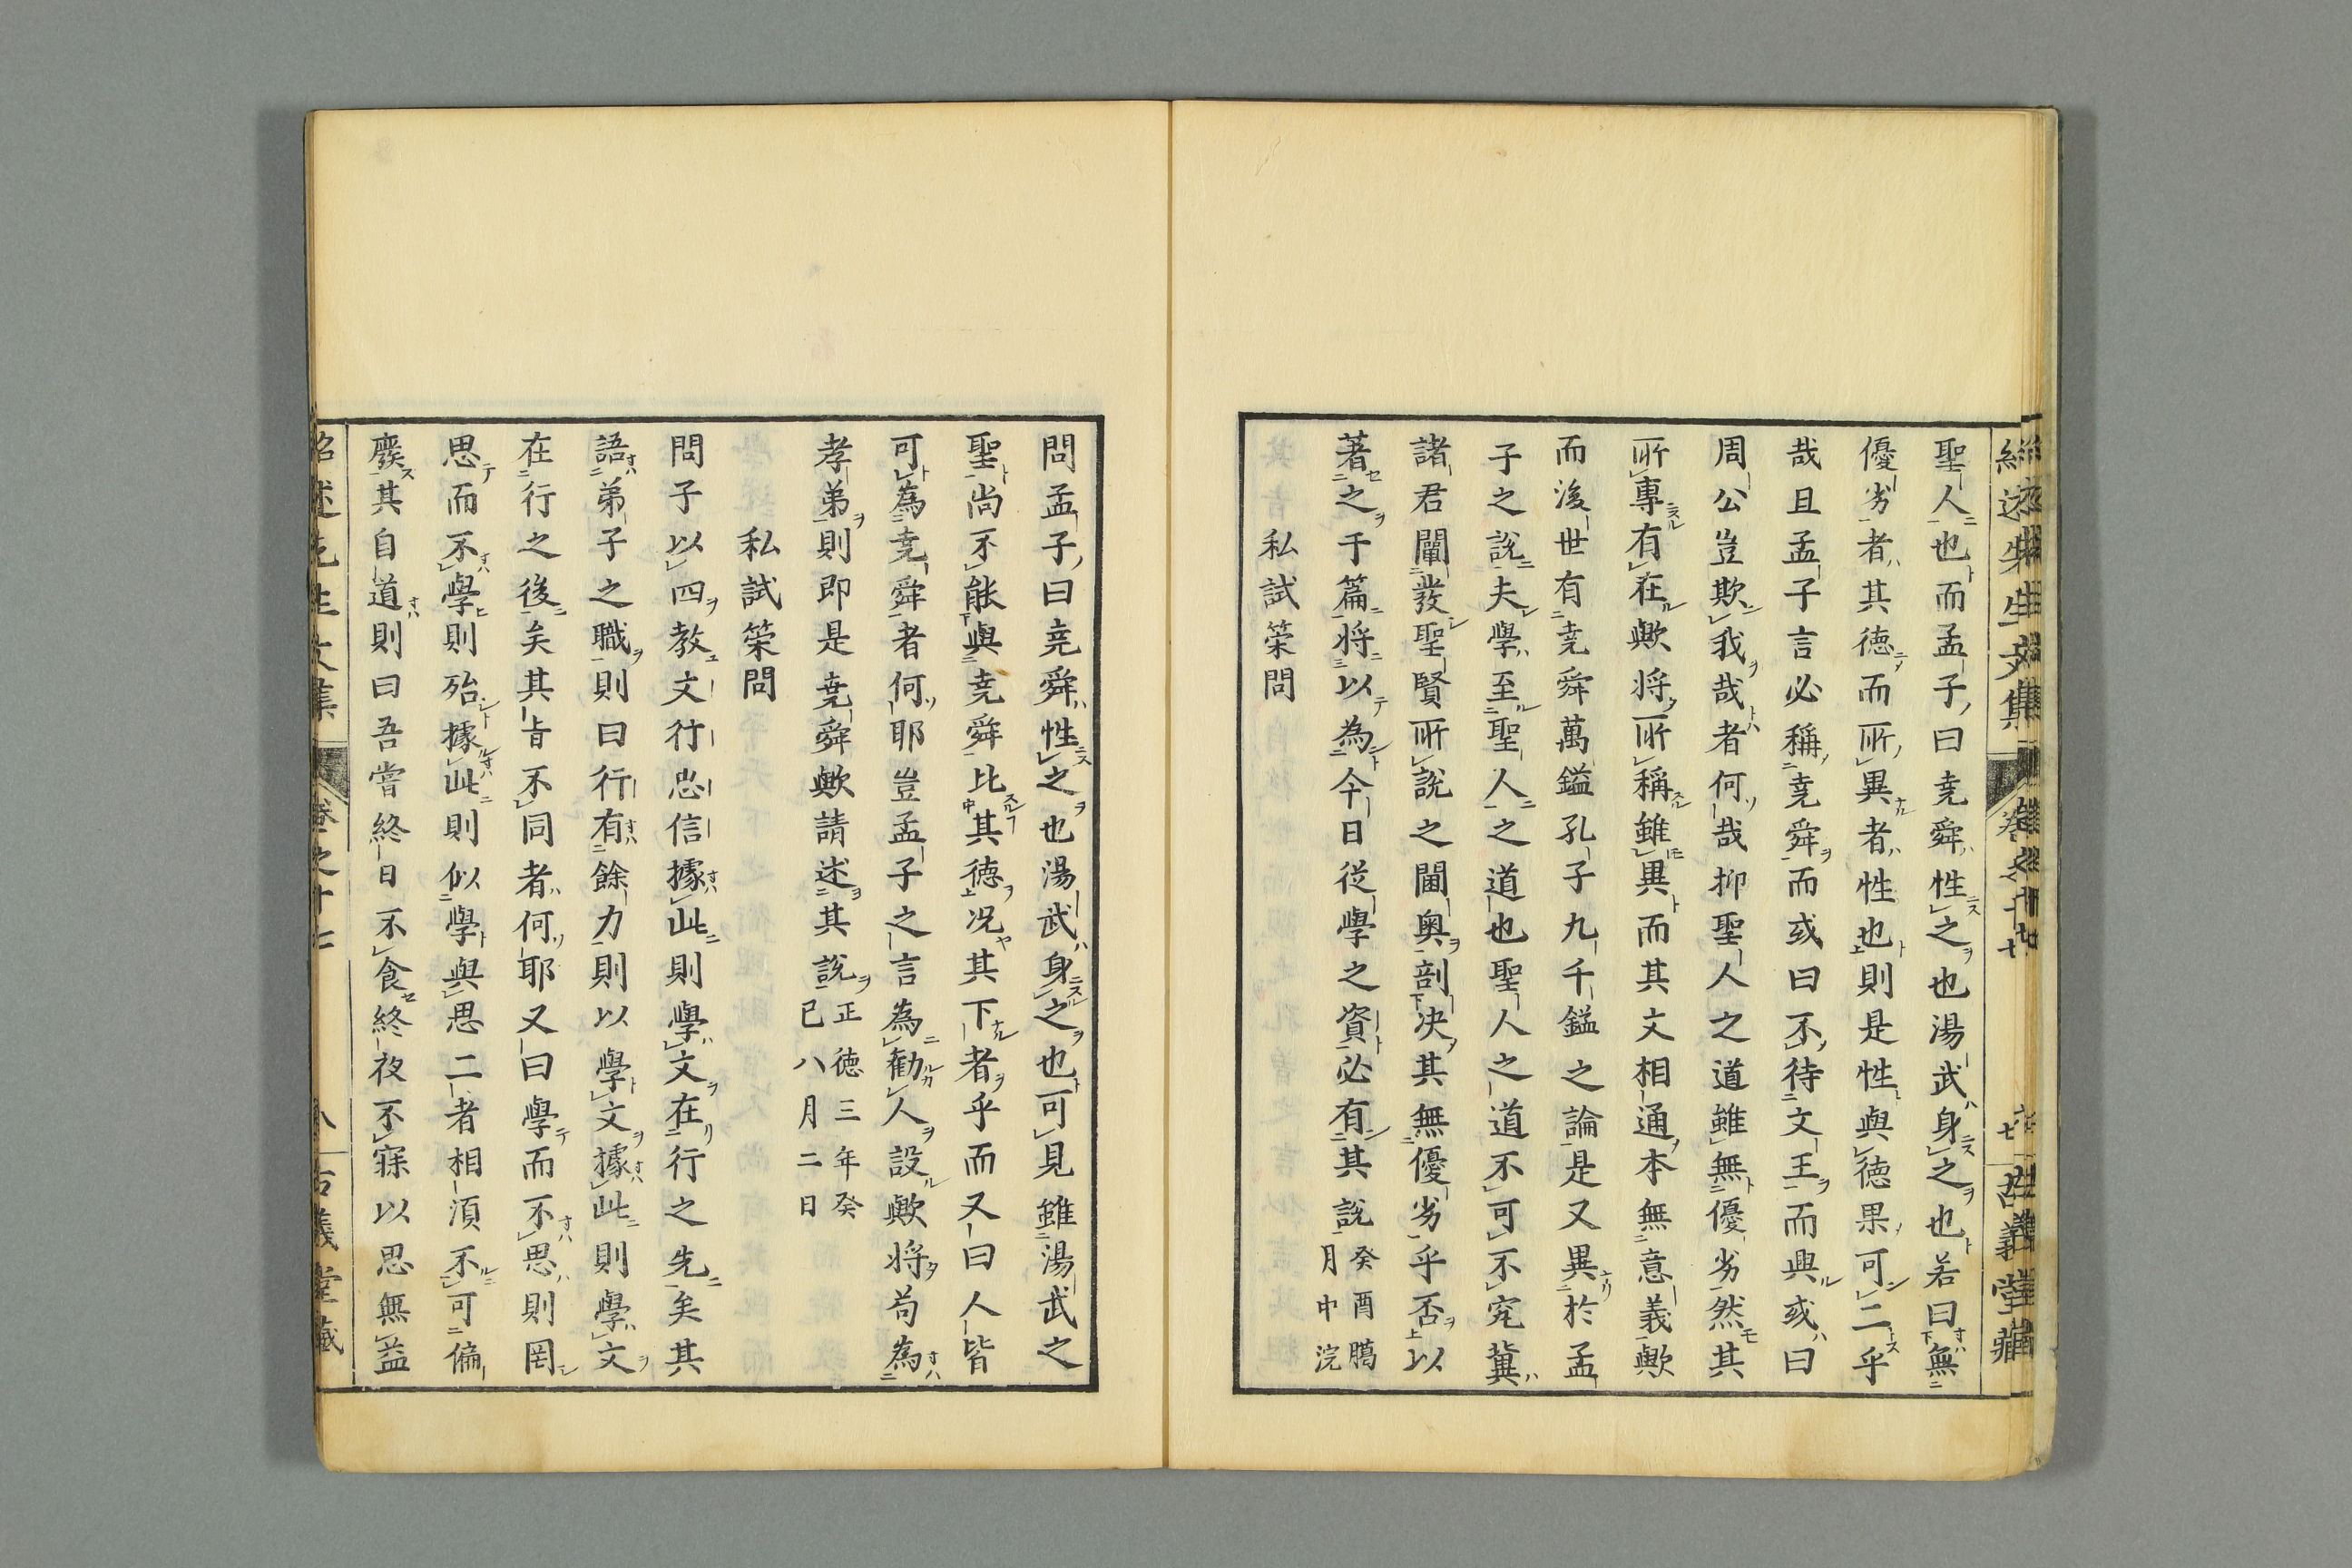 聖人也而孟子曰堯舜性之也湯武身之也若曰無
優劣者其德而所異者性也則是性與德果可二乎
哉且孟子言必稱堯舜而或曰不待文王而興或曰
周公豈欺我哉者何哉抑聖人之道雖無優劣然其
所專有在歟將所稱雖異而其文相通本無意義歟
而後世有堯舜萬鎰孔子九千鎰之論是又異於孟
子之說夫學至聖人之道也聖人之道不可不究冀
諸君闡發聖賢所說之閫奧剖決其無優劣乎否以
著之于篇將以為今日從學之資必有其說癸酉臈
月中浣
私試策問
問孟子曰堯舜性之也湯武身之也可見雖湯武之
聖尚不能與堯舜比其德況其下者乎而又曰人皆
可為堯舜者何耶豈孟子之言為勸人設歟將苟為
孝弟則即是堯舜歟請述其說正德三年癸
巳八月二日
私試策問
問子以四教文行忠信據此則學文在行之先矣其
語弟子之職則曰行有餘力則以學文據此則學文
在行之後矣其旨不同者何耶又曰學而不思則罔
思而不學則殆據此則似學與思二者相須不可偏
廢其自道則曰吾嘗終日不食終夜不寐以思無益
紹述先生文集 卷之十七 八 古義堂藏